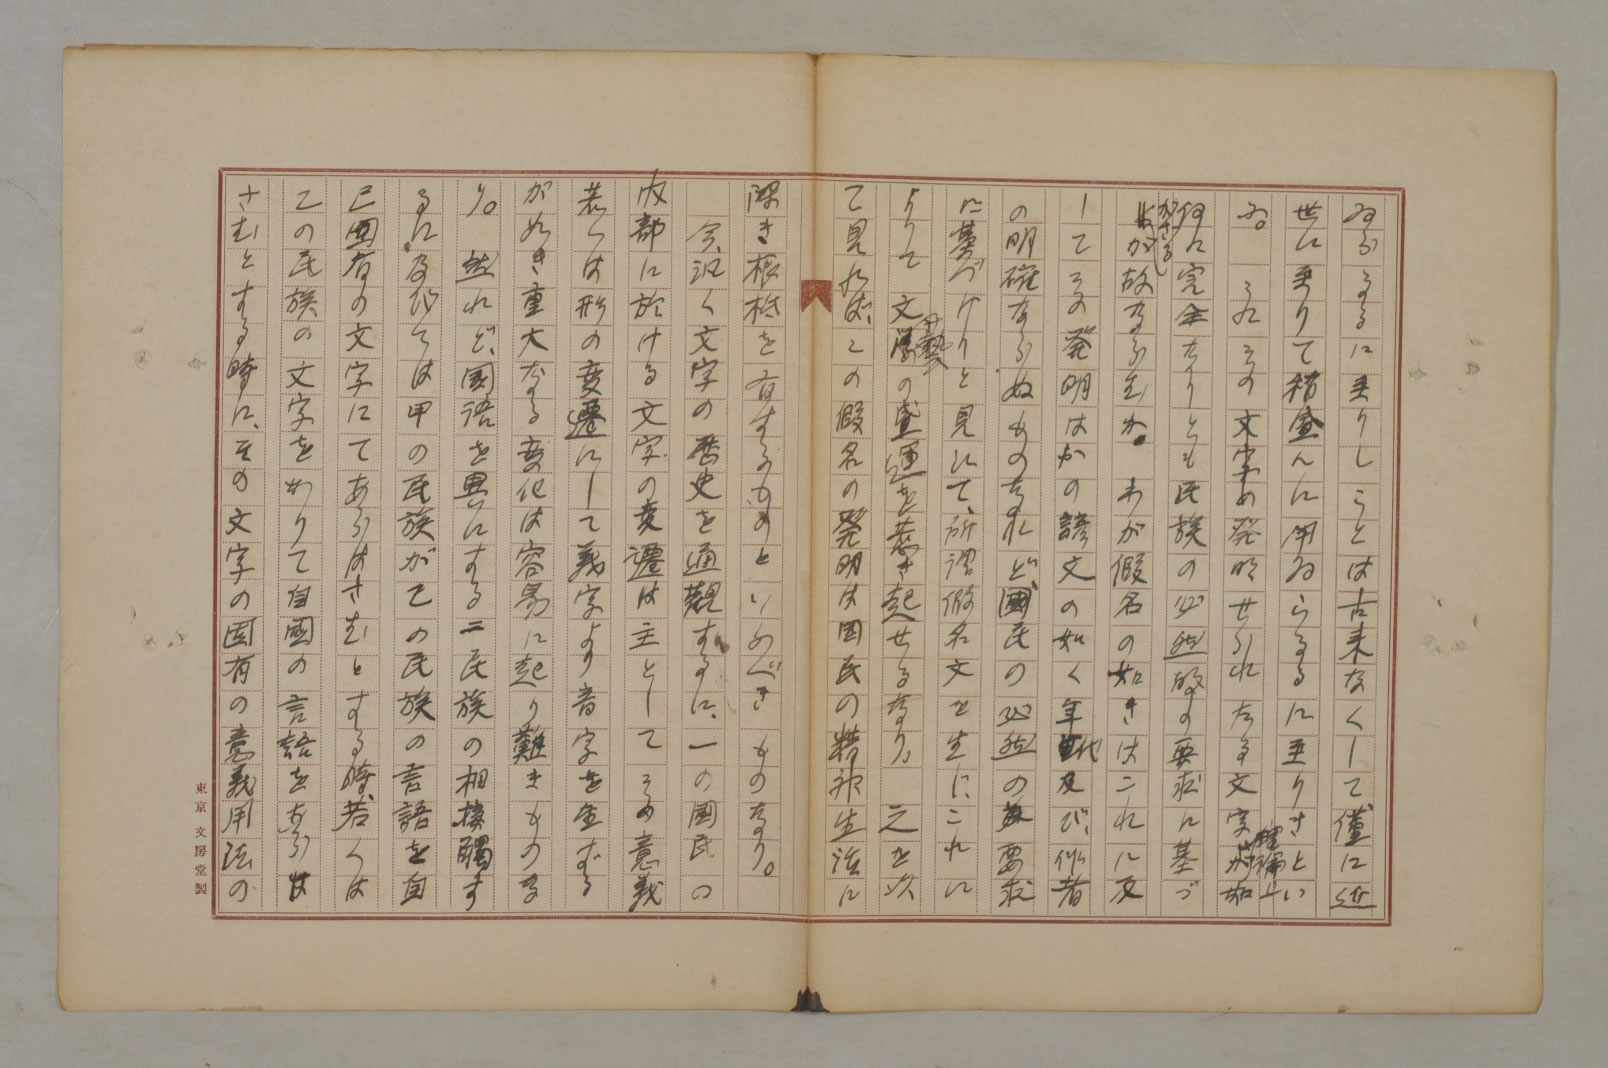 ゐらるるに至りしことは古来なくして僅に近
世に至りて稍盛んに用ゐらるるに至りきとい
ふ。これその文字の発明せられたる文字 理論上 如
何に完全なりとも民族の必然的の要求に基づ
かざるが故ならむか。わが假名の如きはこれに反
してその発明はかの諺文の如く年代及び、作者
の明確ならぬものなれど、國民の必然の要求
に基づけりと見えて、所謂假名文を生じ、これに
よりて文藝の盛運を惹き起せるなり。之を以
て見れば、この假名の発明は国民の精神生活に
深き根柢を有するものといふべきものなり。
今汎く文字の歴史を通觀するに、一の國民の
内部に於ける文字の変遷は主としてその意義
若くは形の変遷にして義字より音字を生ずる
が如き重大なる変化は容易に起り難きものな
り。然れど、國語を異にする二民族の相接觸す
るに及びては甲の民族が乙の民族の言語を自
己固有の文字にてあらはさむとする時、若くは
乙の民族の文字をかりて自國の言語をあらは
さむとする時に、その文字の固有の意義用法の
東京 文房堂製